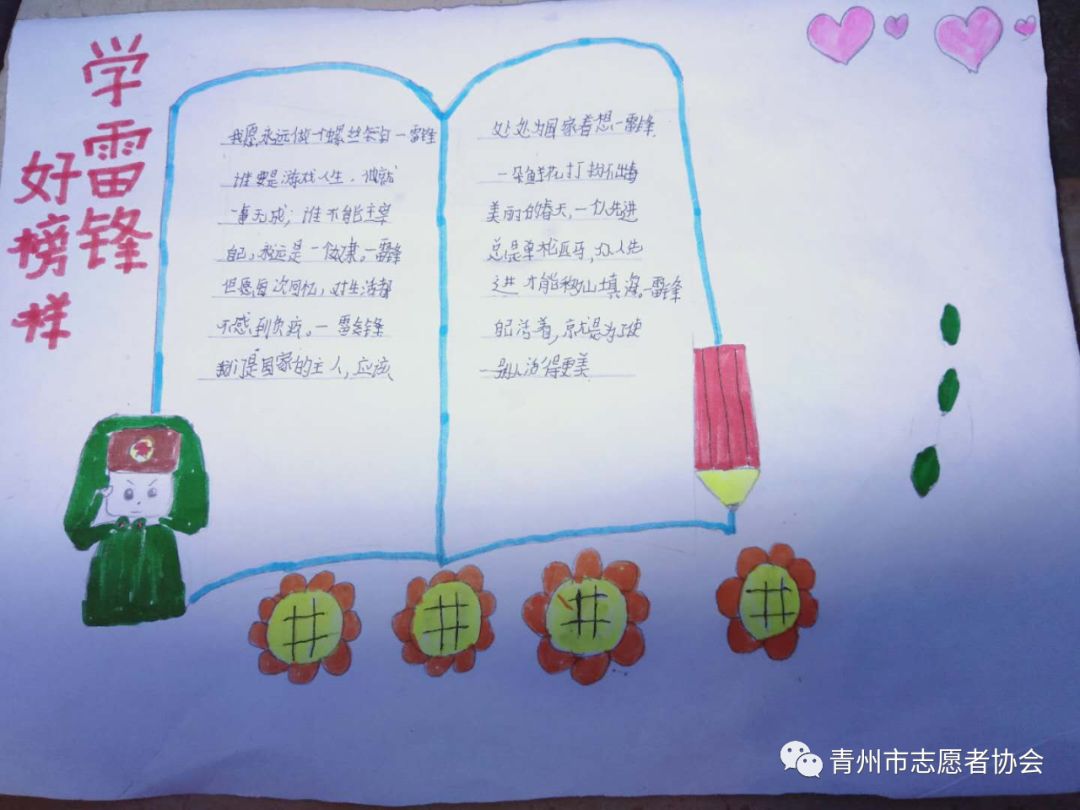 学雷锋
好榜样
我愿永远做一个螺丝钉一雷锋
谁要是游戏人生，他就
一事无成；谁不能主宰
自己，永远是一个奴隶。一雷锋
但愿每次回忆，对生活都
不感到负疚。一雷锋
我们是国家的主人，应该
处处为国家着想一雷锋
一朵鲜花打扮不出
美丽的春天，一个人先进
总是单枪匹马，众人先
进才能移山填海。一雷锋
自己活着，就是为了使
别人活得更美
青州市志愿者协会